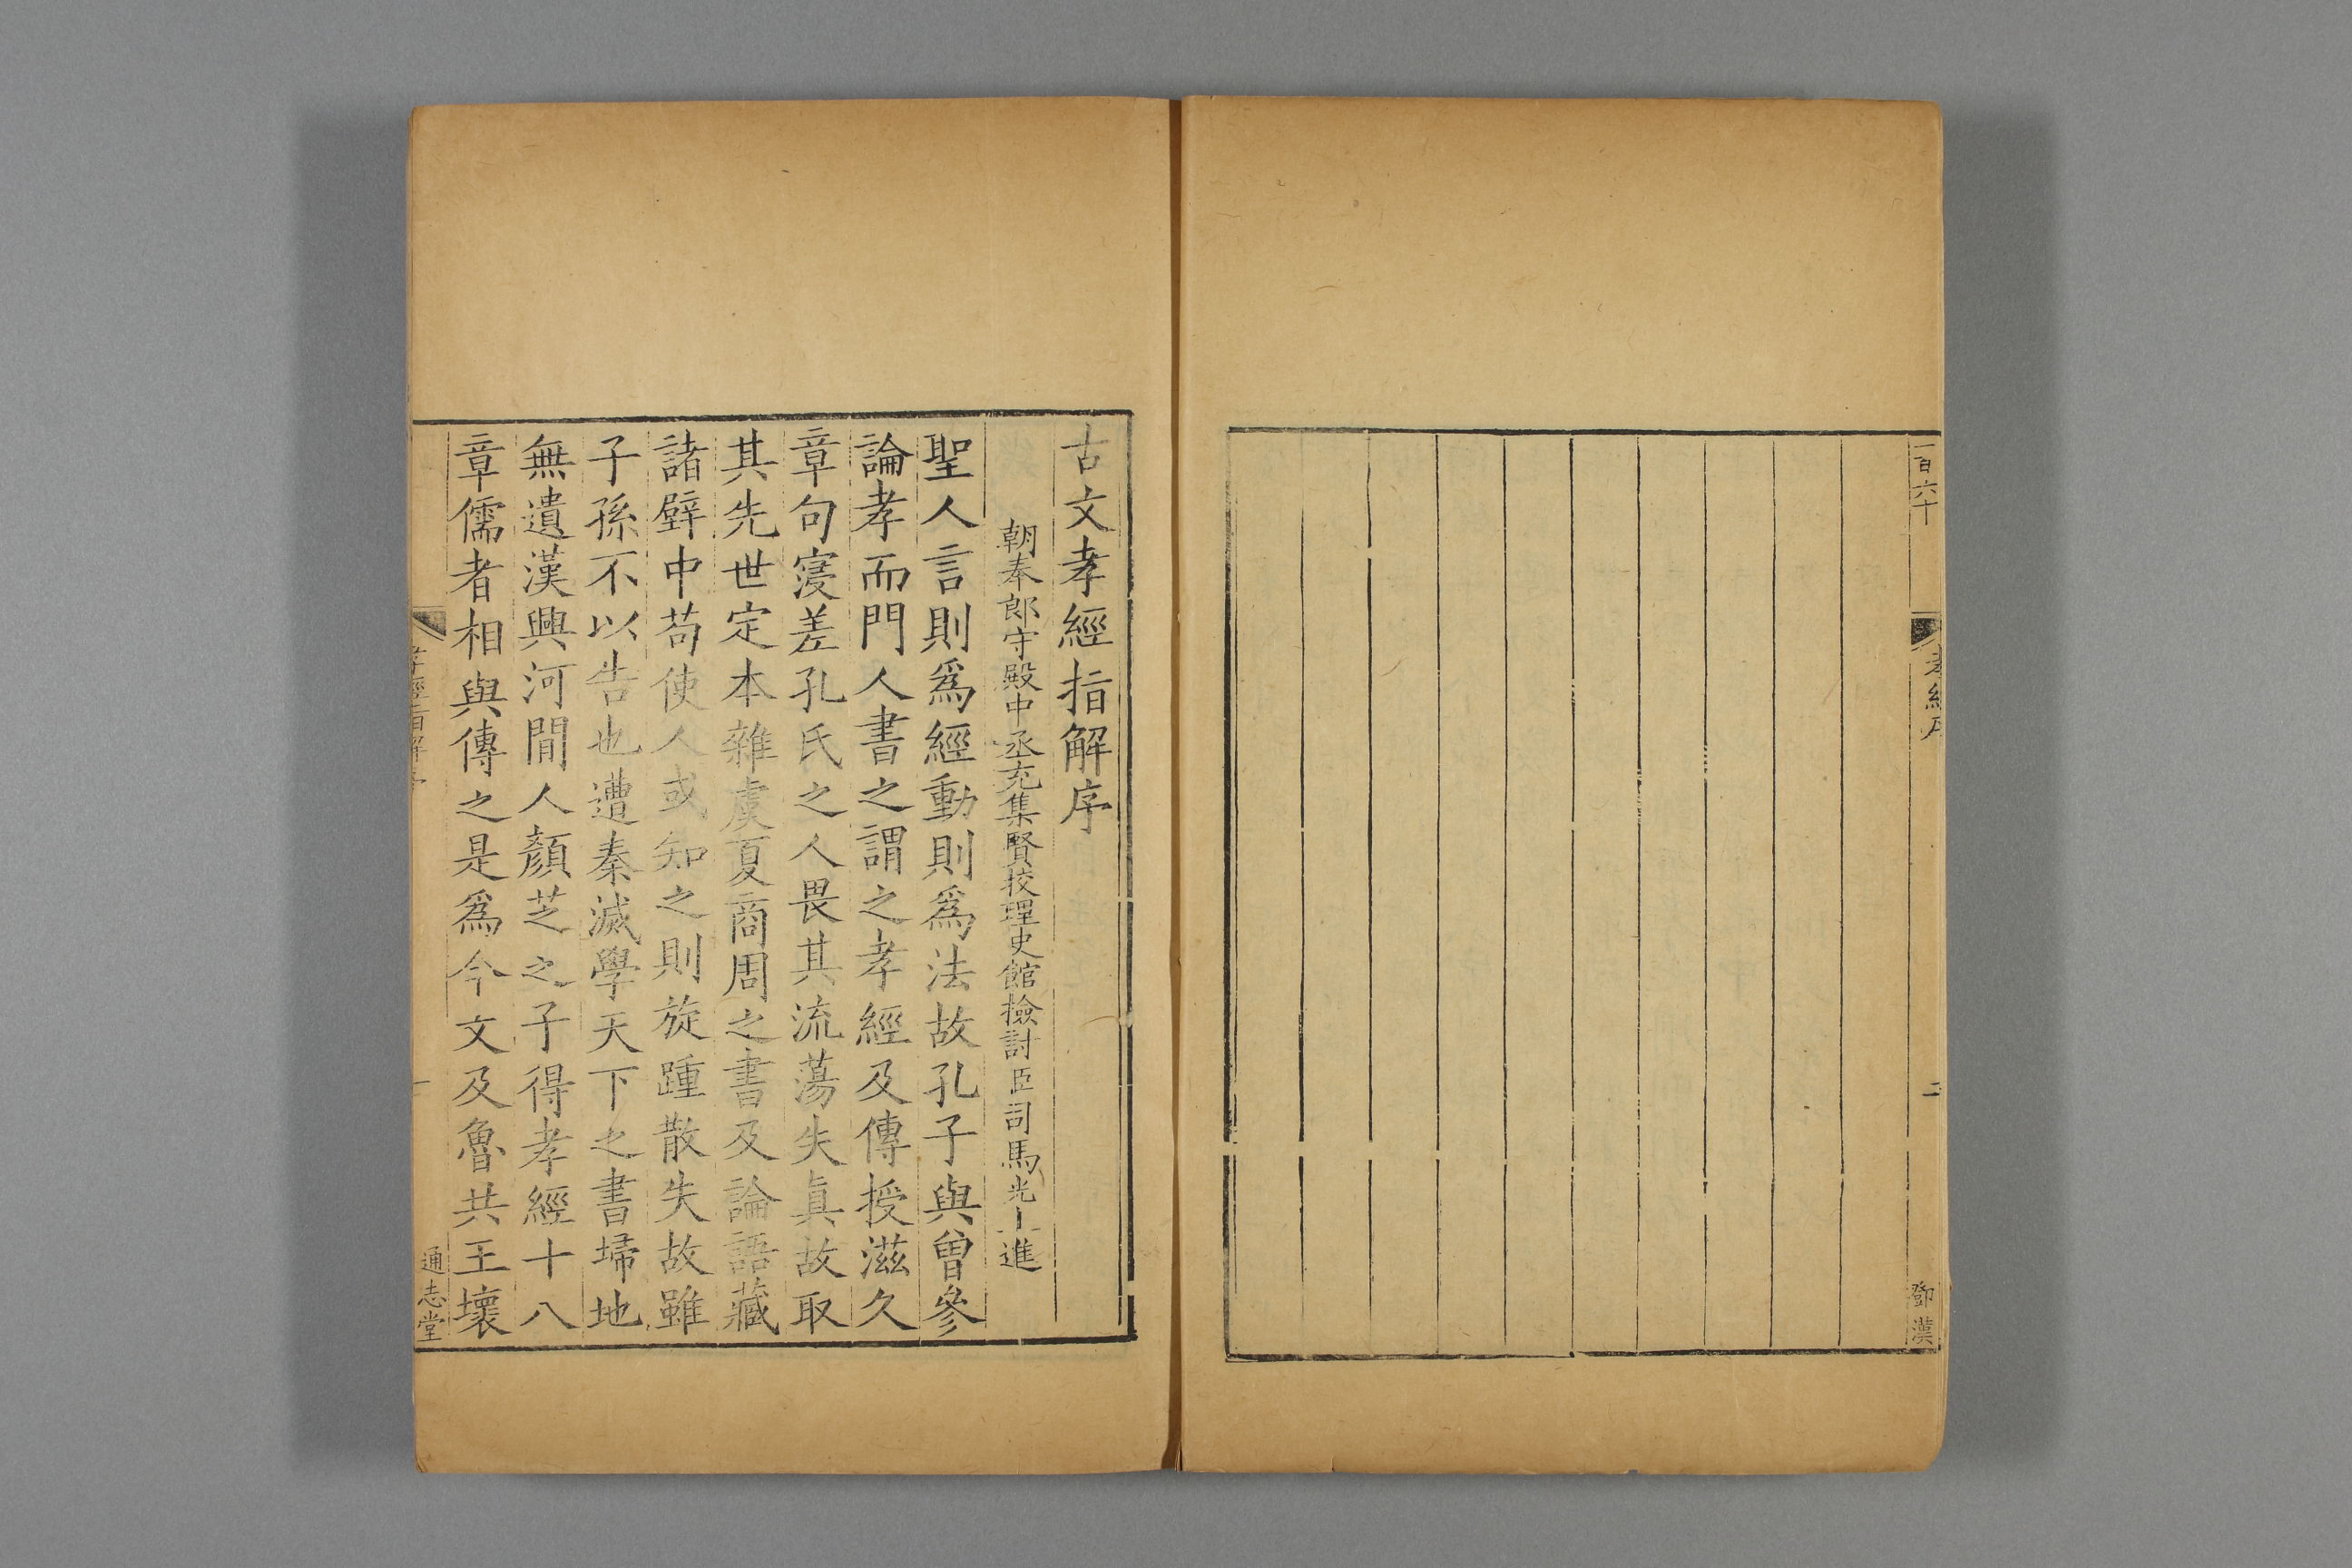 一百六十
孝經序
二
鄧漢
古文孝經指解序
朝奉郎守殿中丞充集賢校理史館檢討臣司馬光上進
聖人言則爲經動則爲法故孔子與曾參
論孝而門人書之謂之孝經及傳授滋久
章句寖差孔氏之人畏其流蕩失眞故取
其先世定本雜虞夏商周之書及論語藏
諸壁中苟使人或知之則旋踵散失故雖
子孫不以告也遭秦滅學天下之書埽地
無遺漢興河閒人顏芝之子得孝經十八
章儒者相與傳之是爲今文及魯共王壞
孝經指解序
一
通志堂